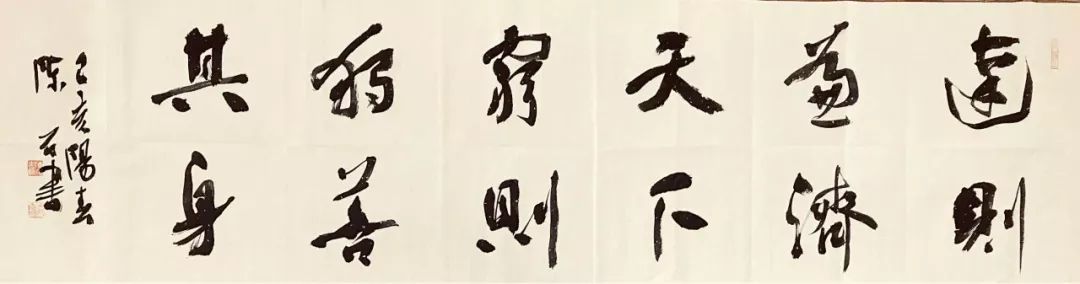 達則
兼濟
天下
窮則
獨善
其身
己亥陽春
陳石書